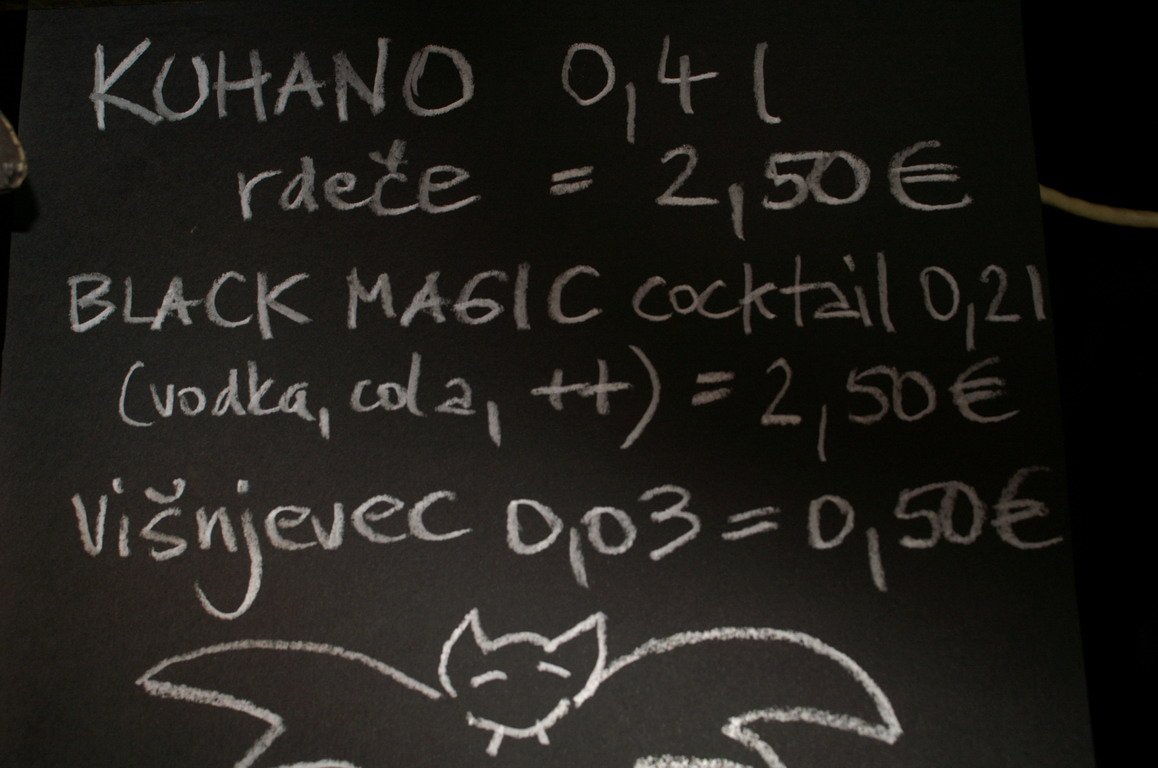 KUHANO 0,4 l
rdeče = 2,50 €
BLACK MAGIC cocktail 0,2 l
(vodka, cola, ++) = 2,50 €
višnjevec 0,03 = 0,50 €